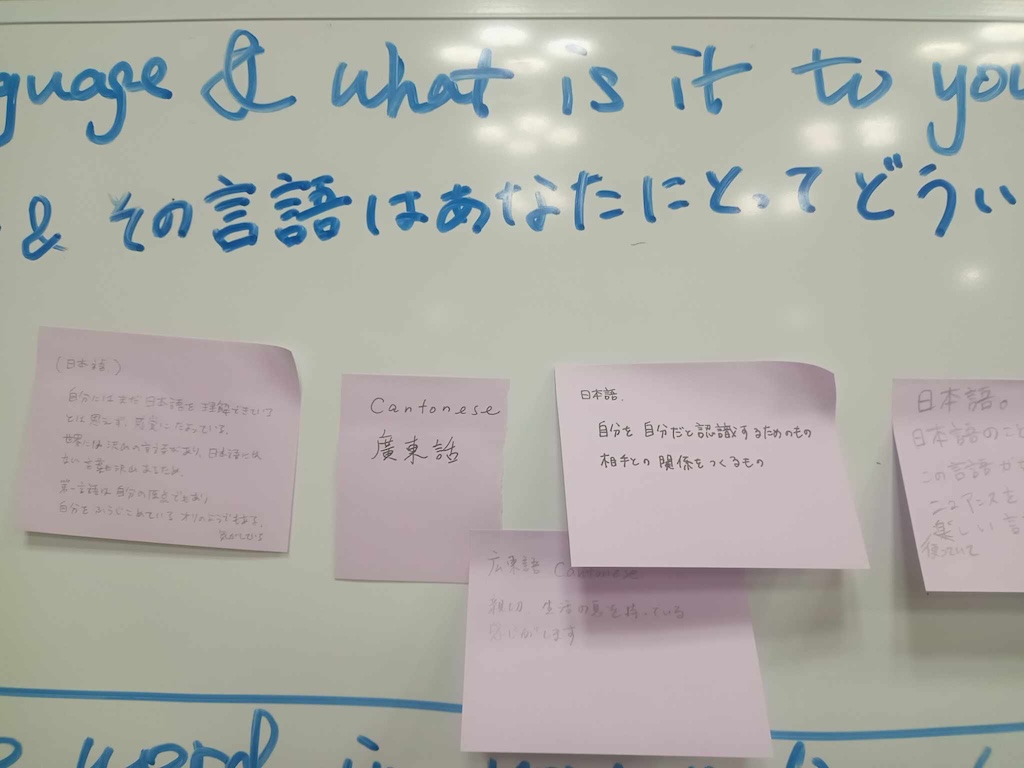 guage & what is it to you
& その言語はあなたにとってどうい
(日本語)
自分にはまだ日本語を理解できている
とは思えず、
世界には沢山の言語があり、日本語にも
言葉も沢山あるため
第一言語は自分の原点でもあり
自分をふうじこめているオリのようでもある。
気がしてる
Cantonese
廣東話
日本語.
自分を自分だと認識するためのもの
相手との関係をつくるもの
広東語 Cantonese
親切、生活の息を持っている
感じがします
日本語。
日本語のこと
この言語が
ニュアンスを
楽しい言
使っていて
word in